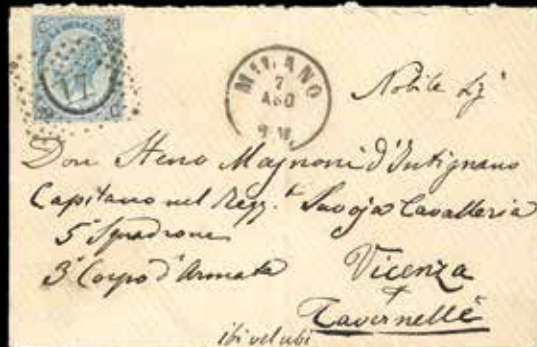 C 20
20 C
17
MILANO
7
AGO
Nobile Sig.
Don Steno Majnoni d'Intignano
Capitano nel Regg.t Savoja Cavalleria
5° Squadrone
3° Corpo d'Armata
Vicenza
Tavernelle
ibi vel ubi